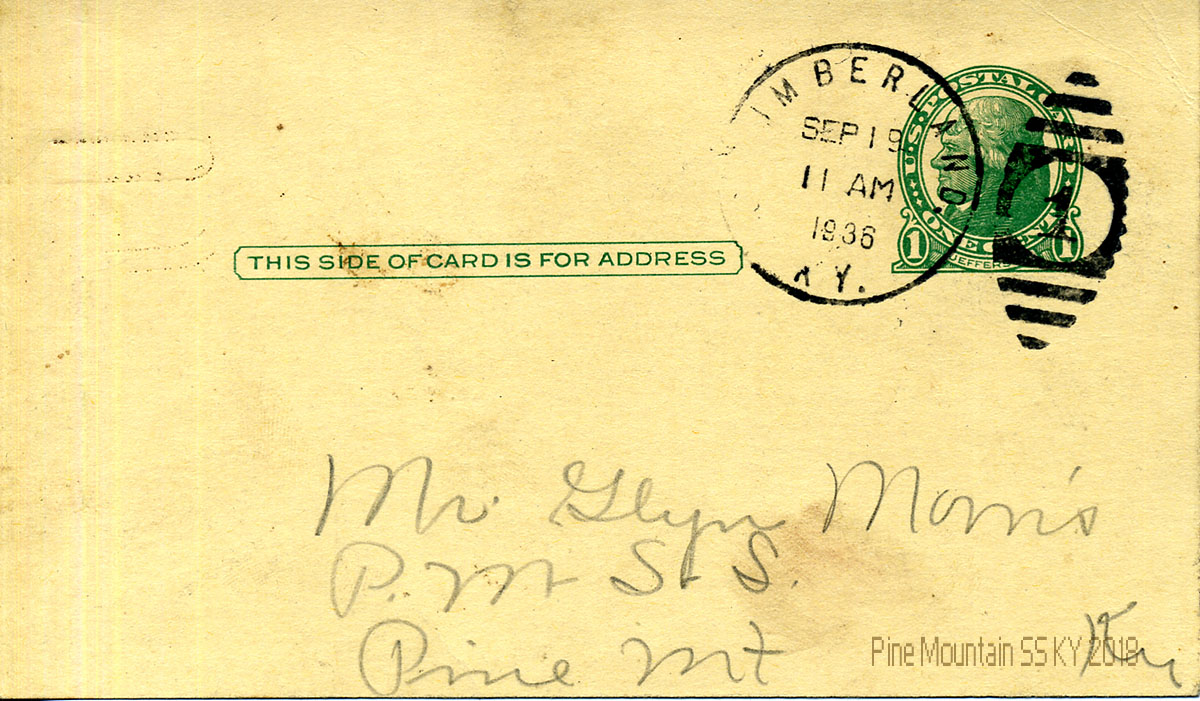 UMBERLAND.
SEP 19
11 AM
1936
KY.
U.S. POSTAL CARD
ONE CENT
1 1
JEFFERS
1
THIS SIDE OF CARD IS FOR ADDRESS
Mr. Glyn Morris
P. Mt S. S.
Pine Mt Ky
Pine Mountain SS KY 2018